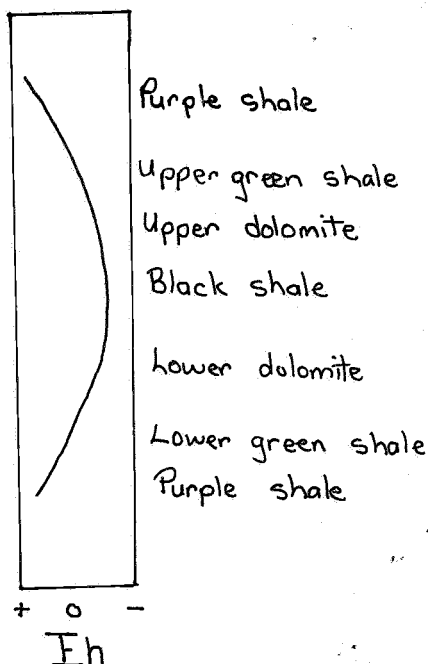 Purple shale
Upper green shale
Upper dolomite
Black shale
Lower dolomite
Lower green shale
Purple shale
+ 0 −
Eh